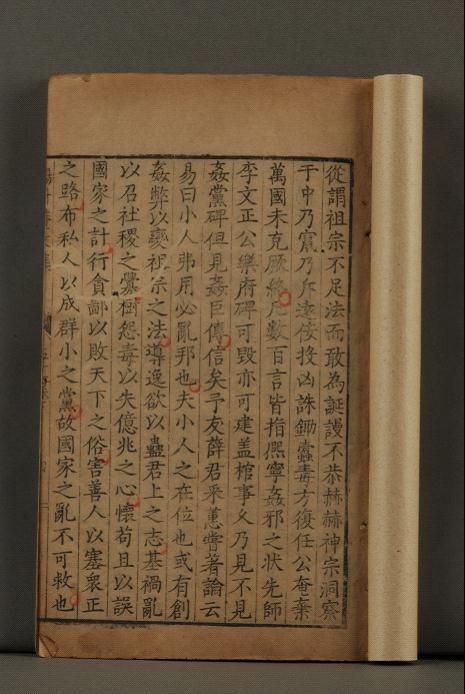 從謂祖宗不足法而敢為誕謾不恭赫赫神宗洞察
于中乃竄乃斥遠佞投凶誅鋤蠹毒方復任公奄棄
萬國未克厥終凡數百言皆指熙寧姦邪之狀先師
李文正公樂府碑可毀亦可建盖棺事久乃見不見
姦黨碑但見姦臣傳信矣予友薛君采蕙嘗著論云
易曰小人弗用必亂邦也夫小人之在位也或有創
姦弊以變祖宗之法導逸欲以蠱君上之志基禍亂
以召社稷之釁樹怨毒以失億兆之心懷苟且以誤
國家之計行貪鄙以敗天下之俗害善人以塞衆正
之路布私人以成群小之黨故國家之亂不可救也